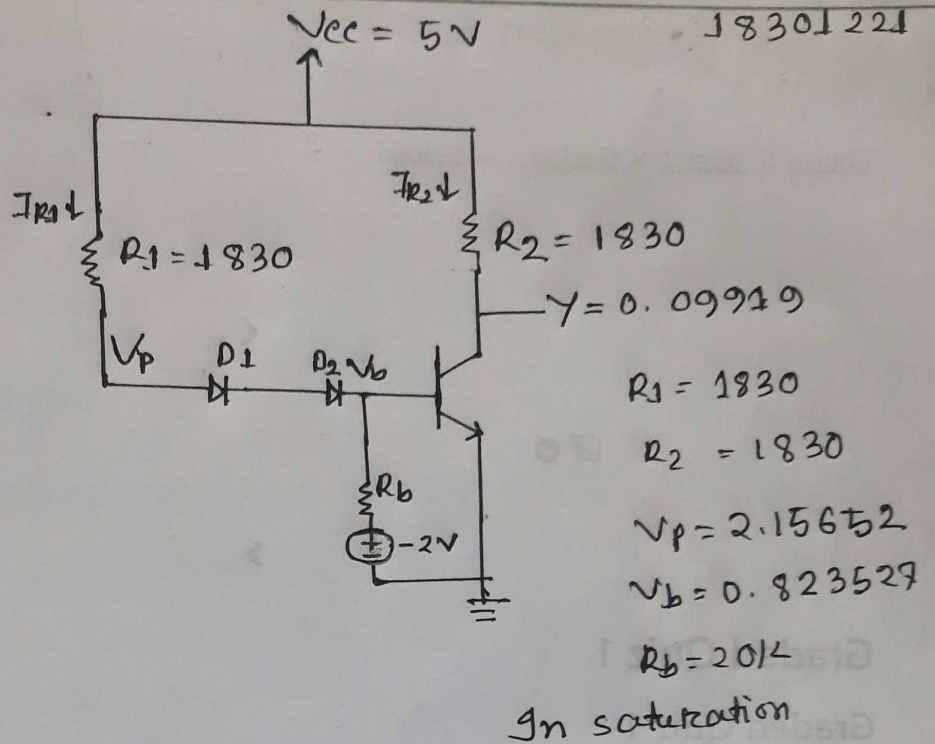 Vcc = 5V
18301221
IR1↓
R1 = 1830
IR2↓
R2 = 1830
Y = 0.09919
Vp
D1
D2
Vb
Rb
-2V
R1 = 1830
R2 = 1830
Vp = 2.15652
Vb = 0.823527
Rb = 20K
In saturation